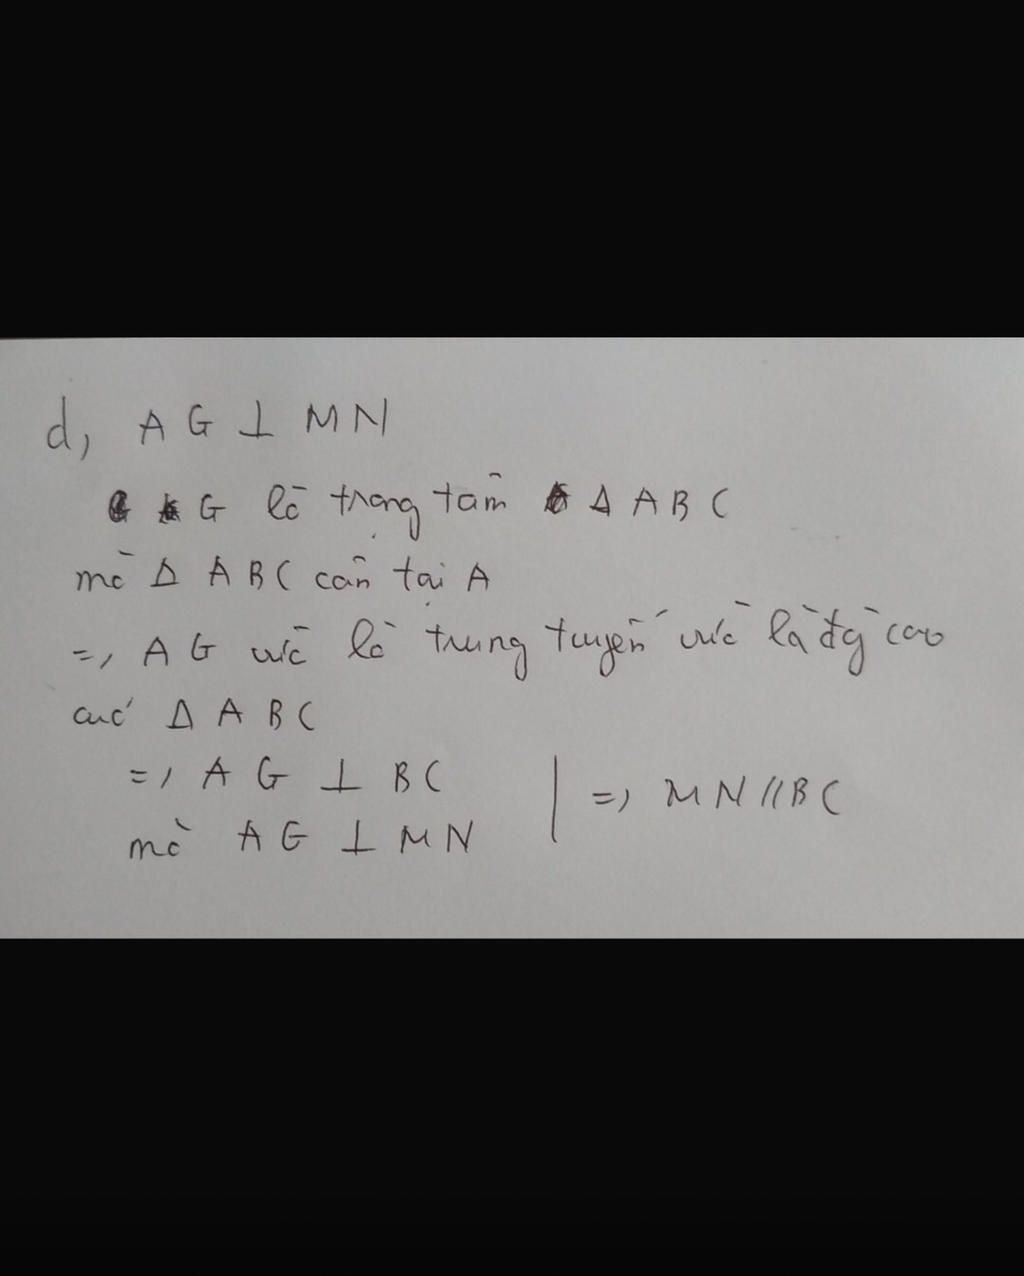 d, AG ⊥ MN
G là trọng tâm Δ ABC
mà Δ ABC cân tại A
=> AG vừa là trung tuyến vừa là đg cao
của Δ ABC
=> AG ⊥ BC
mà AG ⊥ MN
=> MN // BC